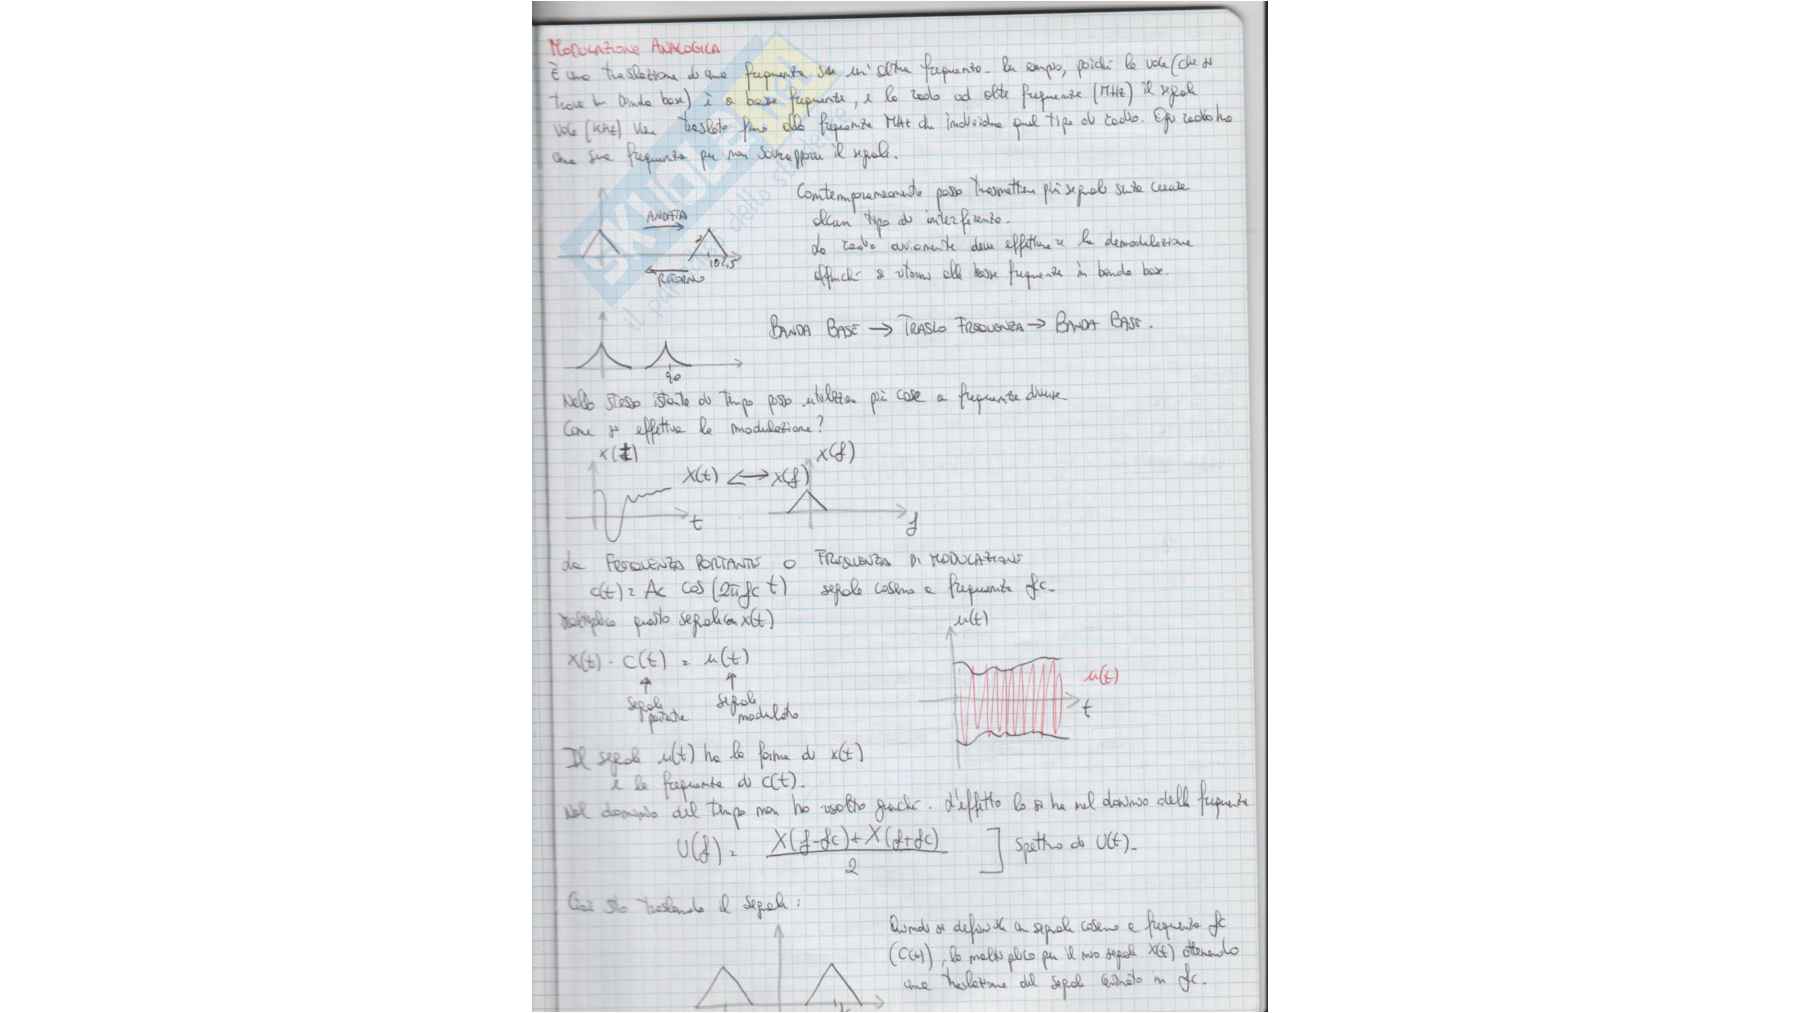 MODULAZIONE ANALOGICA
È una traslazione di una frequenza su un'altra frequenza. Ad esempio, poiché la voce (che si
trova in banda base) è a bassa frequenza, e la radio ad alte frequenze (MHz) il segnale
voce (KHz) vien traslato fino alla frequenza MHz che individua quel tipo di radio. Ogni radio ha
una sua frequenza per non sovrapporre il segnale.
Contemporaneamente posso trasmettere più segnali senza creare
alcun tipo di interferenza.
ANDATA
102,5
La radio ovviamente deve effettuare la demodulazione
affinché si ritorni alla bassa frequenza in banda base.
RITORNO
SKUOLA.net
BANDA BASE → TRASLO FREQUENZA → BANDA BASE.
90
Nello stesso istante di tempo posso utilizzare più case a frequenze diverse
Come si effettua la modulazione?
x(t)
X(f)
X(t) ↔ X(f)
t
f
La FREQUENZA PORTANTE o FREQUENZA DI MODULAZIONE
c(t) = Ac cos(2π fc t) segnale coseno a frequenza fc.
Moltiplico questo segnale con x(t)
u(t)
X(t) · C(t) = u(t)
u(t)
t
segnale portante
segnale modulato
Il segnale u(t) ha la forma di x(t)
e la frequenza di c(t).
Nel dominio del tempo non ho risolto granché. L'effetto lo si ha nel dominio delle frequenze
U(f) = X(f-fc)+X(f+fc)
2
] Spettro di U(t).
Così sto traslando il segnale:
Quindi si definisce un segnale coseno a frequenza fc
(C(t)), lo moltiplico per il mio segnale X(t) ottenendo
una traslazione del segnale centrato in fc.